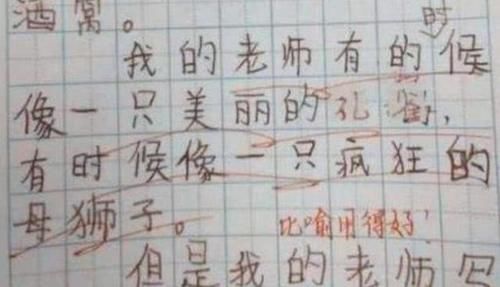 酒窝。
时
我的老师有的候
像一只美丽的孔
有时候像一只疯狂的
母狮子。
比喻用得好!
但是我的老师